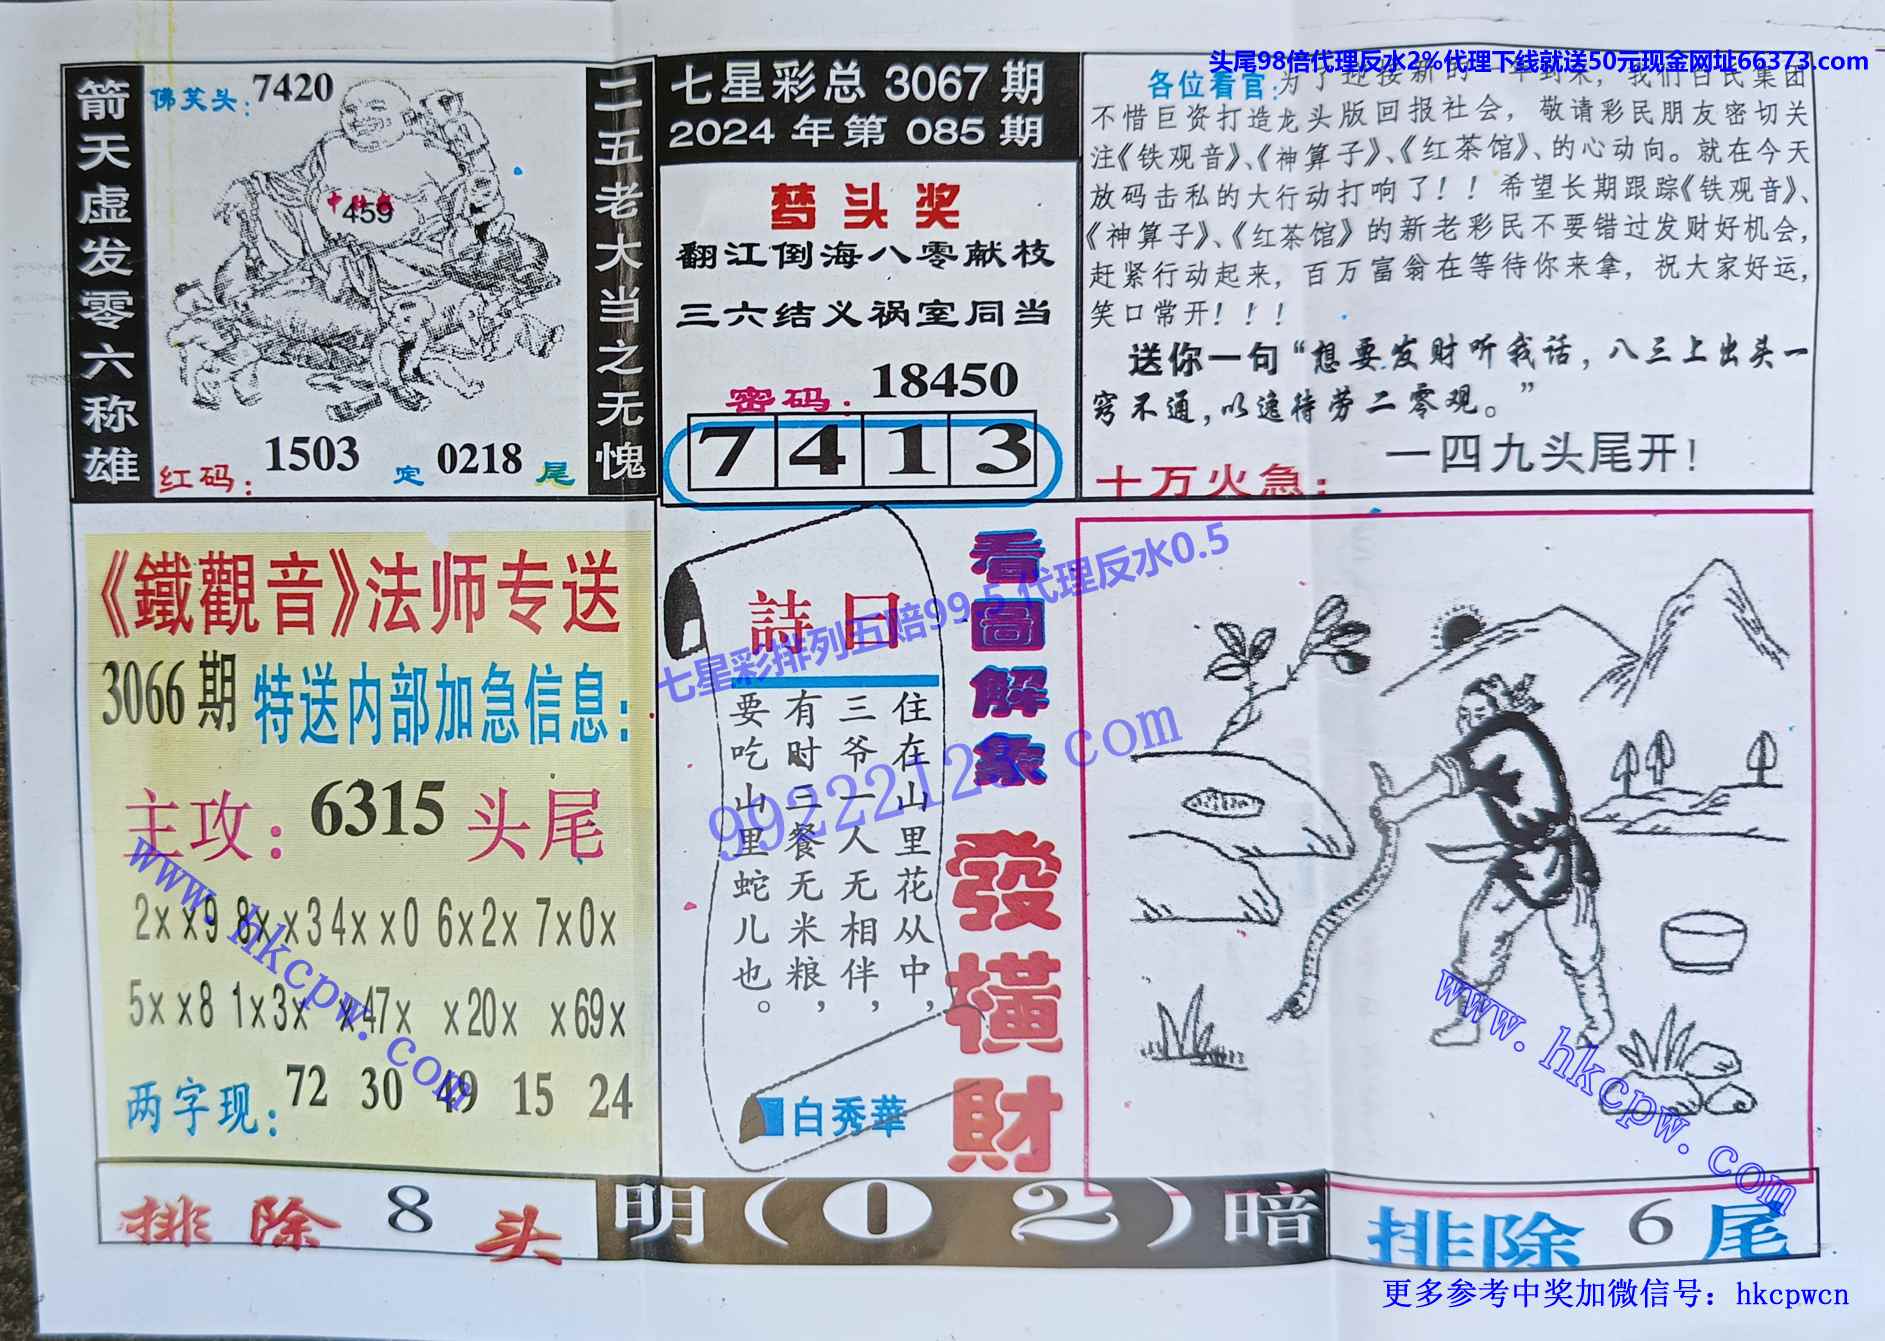 头尾98倍代理反水2%代理下线就送50元现金网址66373.com
箭天虚发零六称雄
佛笑头：7420
中 459
红码：1503 定 0218 尾
二五老大当之无愧
七星彩总 3067 期
2024 年第 085 期
梦头奖
翻江倒海八零献枝
三六结义祸室同当
密码：18450
7 4 1 3
各位看官：为了迎接新的一年到来，我们百民集团
不惜巨资打造龙头版回报社会，敬请彩民朋友密切关
注《铁观音》、《神算子》、《红茶馆》、的心动向。就在今天
放码击私的大行动打响了！！希望长期跟踪《铁观音》、
《神算子》、《红茶馆》的新老彩民不要错过发财好机会，
赶紧行动起来，百万富翁在等待你来拿，祝大家好运，
笑口常开！！！
送你一句“想要发财听我话，八三上出头一
窍不通，以逸待劳二零观。”
十万火急：一四九头尾开！
《鐵觀音》法师专送
3066期 特送内部加急信息：
主攻：6315 头尾
2××9 8××3 4××0 6×2× 7×0×
5××8 1×3× ×47× ×20× ×69×
两字现：72 30 49 15 24
詩曰
住在山里花从中，
三爷一人无相伴，
有时三餐无米粮，
要吃山里蛇儿也。
白秀華
看圖解象
發橫財
七星彩排列五赔99.5 代理反水0.5
www.hkcpw.com
www.hkcpw.com
排除 8 头
明（0 2）暗
排除 6 尾
更多参考中奖加微信号：hkcpwcn